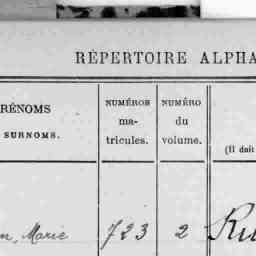 RÉPERTOIRE ALPHA
RÉNOMS
SURNOMS.
NUMÉROS
ma-
tricules.
NUMÉRO
du
volume.
(Il doit
n, Marie
723
2